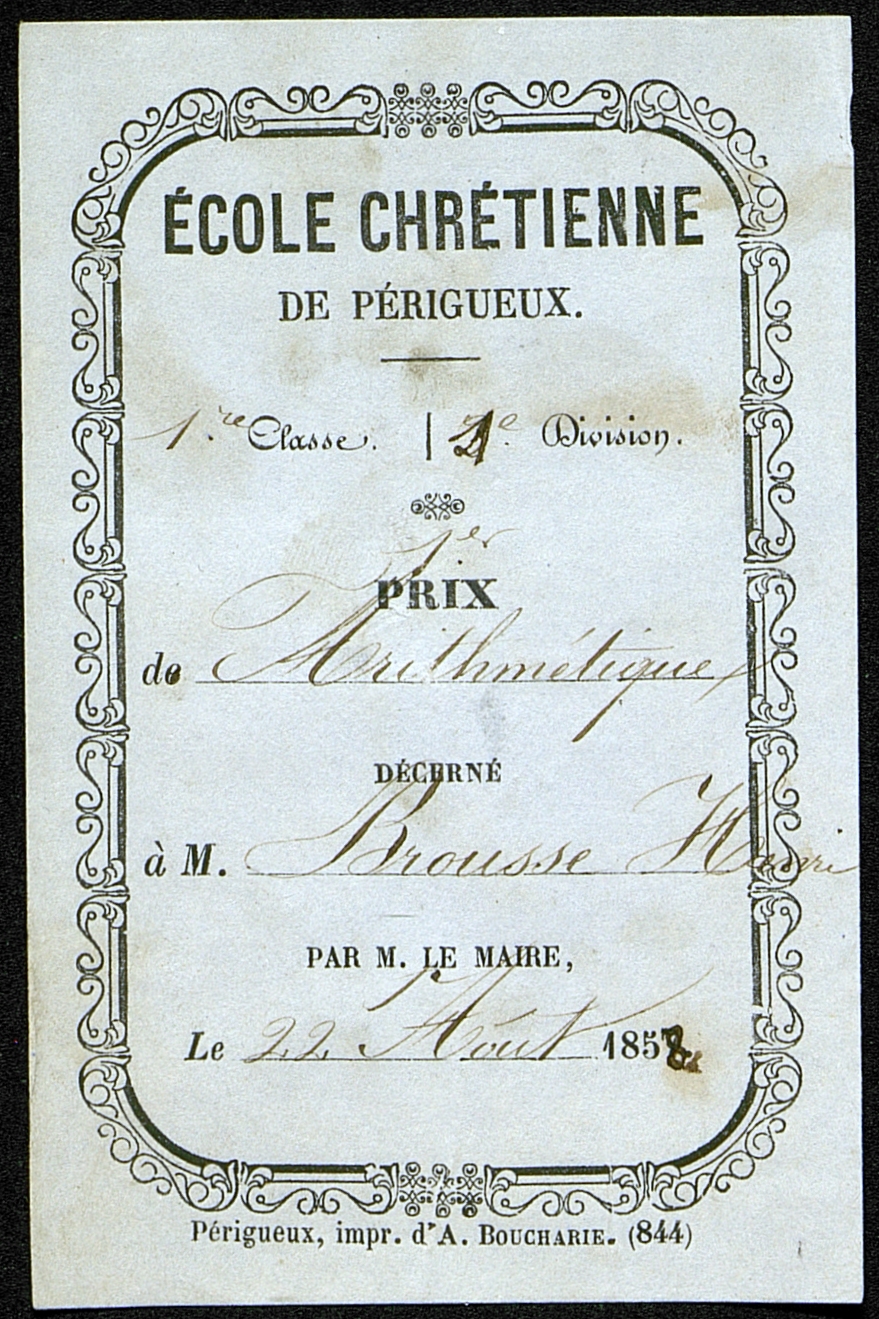 ÉCOLE CHRÉTIENNE
DE PÉRIGUEUX.
1.re Classe. | 1e. Division.
1er
PRIX
de Arithmétique
DÉCERNÉ
à M. Brousse Henri
PAR M. LE MAIRE,
Le 22 Août 1858.
Périgueux, impr. d'A. BOUCHARIE. (844)